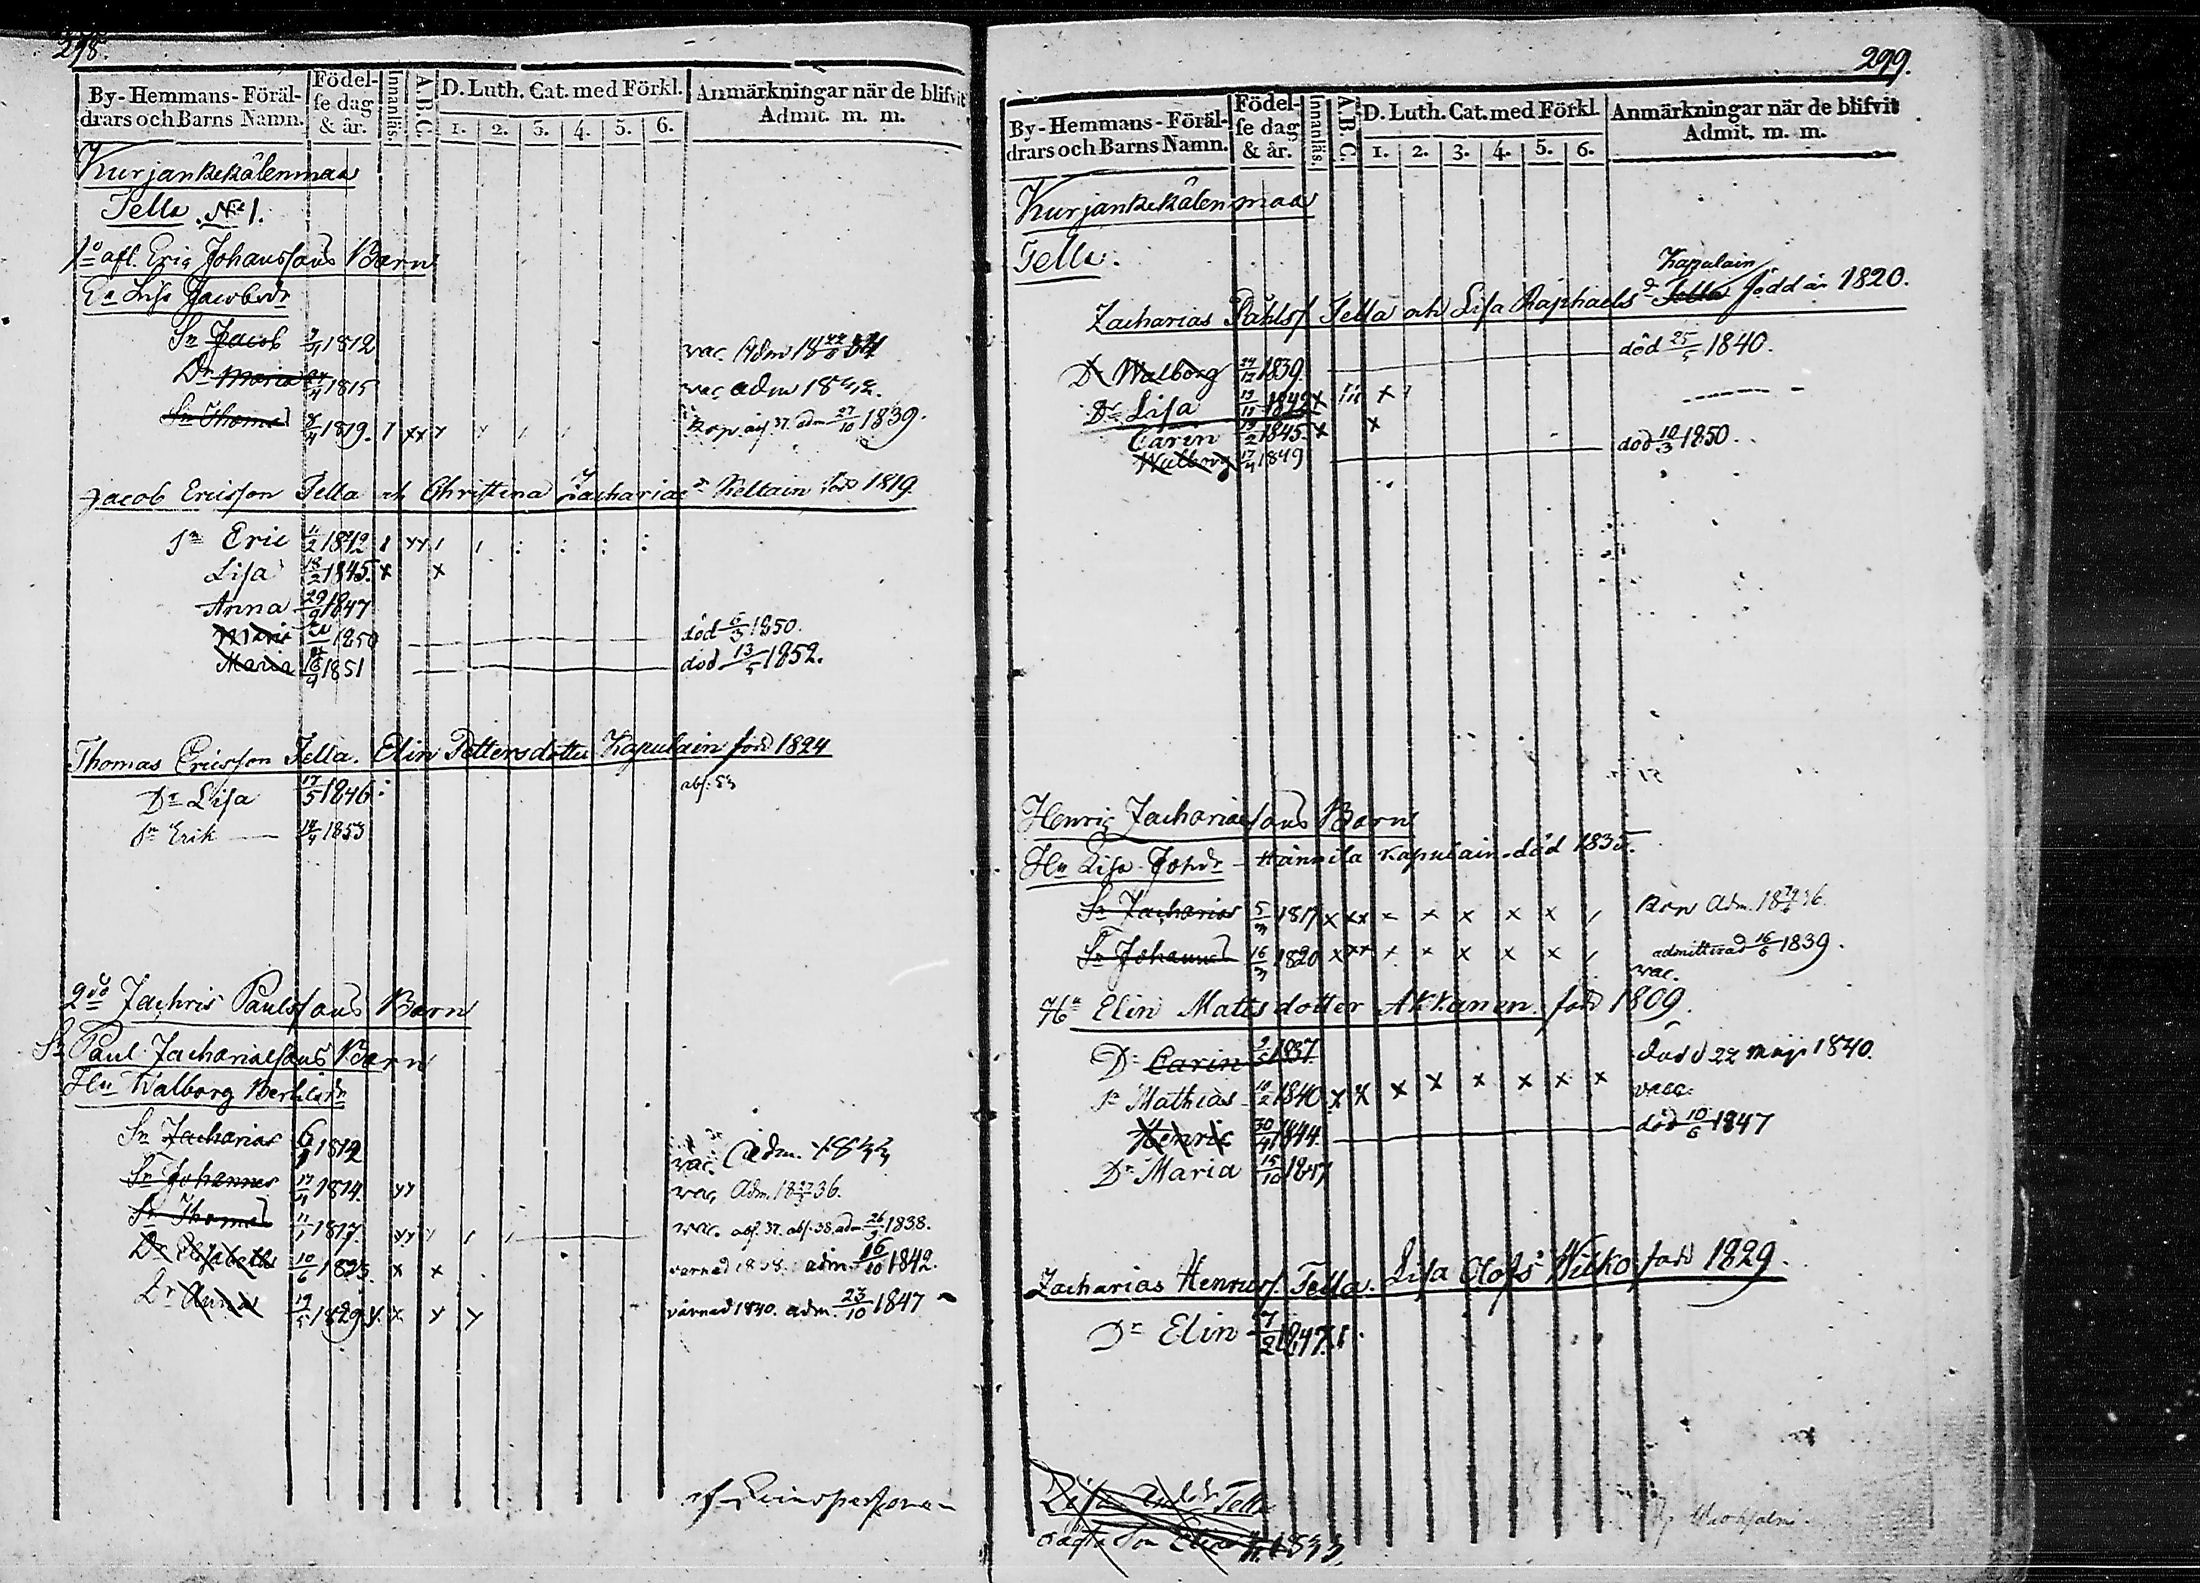 298.
By-Hemmans-Föräl-
drars och Barns Namn.
Födel-
se dag
& år.
Innanläs
A.B.C.
D. Luth. Cat. med Förkl.
1. 2. 3. 4. 5. 6.
Anmärkningar när de blifvit
Admit. m. m.
Kurjankekälenmaa
Tella No 1.
1o afl. Eric Johanssons Barn
Ea Lisa Jacobsdr
Sn Jacob 1812 vac. Adm
Dr Maria 1815 vac adm
Sn Thomas 8/4 1819. 27/10 1839.
Jacob Ericsson Tella och Christina Zachariae Keltain född 1819.
Sn Eric 11/2 1842
Lisa 18/2 1845. x x
Anna 29/9 1847
Maria 1850 död 6/3 1850.
Maria 18/4 1851 död 13/5 1852.
Thomas Ericsson Tella. Elin Pettersdotter Kapulain född 1824
Dr Lisa 17/5 1846 abs. 53
Sn Erik 14/4 1853
2do Zachris Paulssons Barn
Sn Paul Zachariaesons Barn
Hu Walborg
Sn Zacharias 1812 vac. Adm. 1833
Sn Johannes 17/4 1814. vac. Adm. 36.
Sn Thomas 11/1 1817. vac. abs. 37. abs. 38. adm 1838.
Dr Elisabeth 10/6 1823. x x varnad 1838. adm. 16/10 1842.
Dr Anna 19/5 1829 varnad 1840. adm. 23/10 1847
299.
By-Hemmans-Föräl-
drars och Barns Namn.
Födel-
se dag
& år.
Innanläs
A.B.C.
D. Luth. Cat. med Förkl.
1. 2. 3. 4. 5. 6.
Anmärkningar när de blifvit
Admit. m. m.
Kurjankekälenmaa
Tella.
Kapulain
Zacharias Påhlss Tella och Lisa Raphaelsd Tella född år 1820.
Dr Walborg 1839 död 25/5 1840.
Dr Lisa 1842
Carin 19/2 1845. x x
Walborg 17/4 1849 död 10/3 1850.
Henric Zachariaesons Barn
Hu Lisa Johdr Hannila Kapulain död 1835.
Sn Zacharias 5/3 1817 x xx x x x x Adm.
Sn Johannes 16/3 1820 x xx x x x x x admitterad 16/6 1839.
vac.
Hu Elin Matts dotter Akkanen född 1809.
Dr Carin 1837 död d 22 Maji 1840.
Sn Mathias 10/2 1840 x x x x x x x x vacc.
Henric 30/4 1844 död 10/6 1847
Dr Maria 15/10 1847
Zacharias Henricss. Tella. Lisa Olofs Wilko född 1829.
Dr Elin 1847.
Tella
Son Elias 1833.